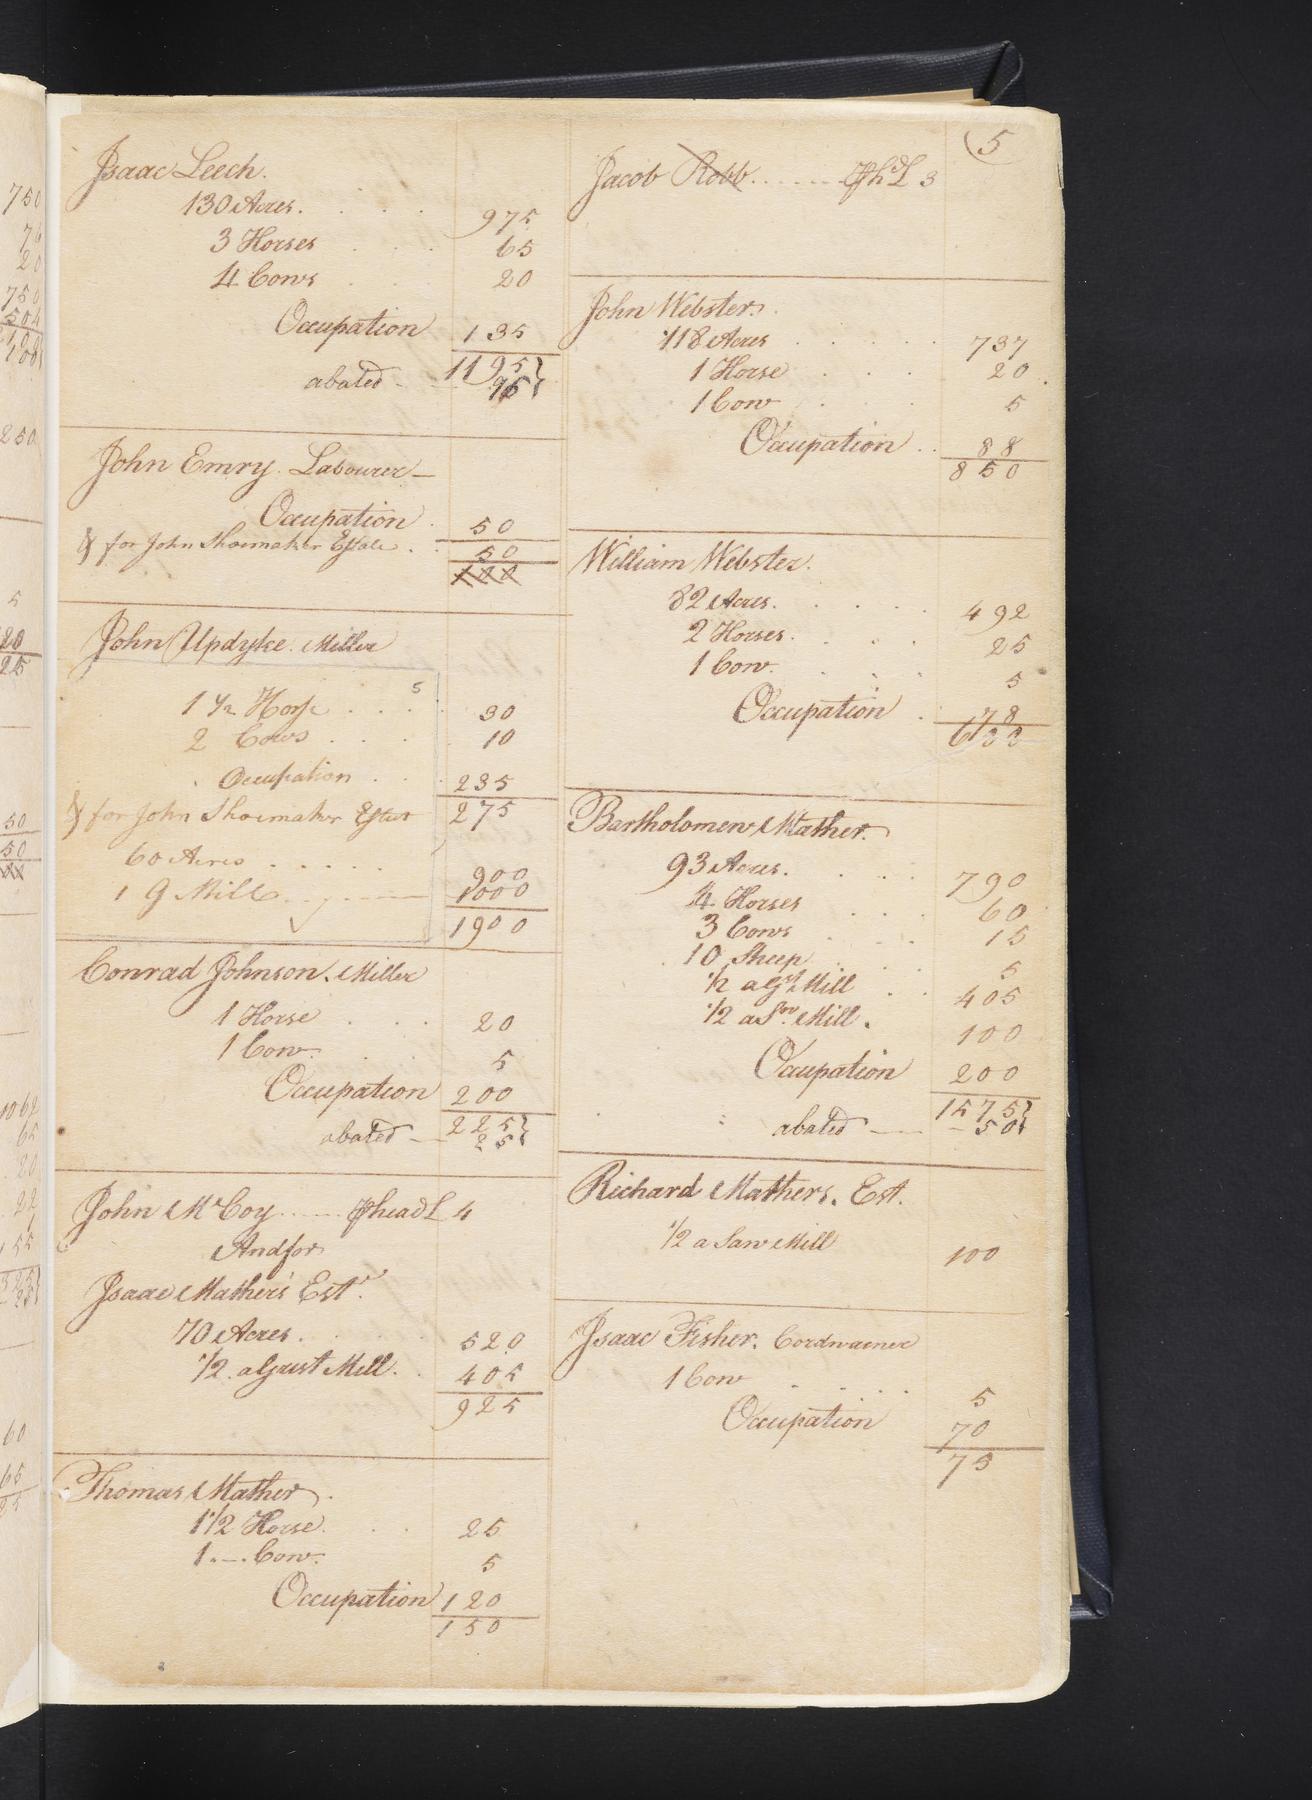 5
Isaac Leech.
130 Acres. 975
3 Horses 65
4 Cows 20
Occupation 135
1195
abated 95
John Emry. Labourer
Occupation 50
& for John Shoemaker Estate. 50
100
John Updyke. Miller
5
1 1/2 Horse 30
2 Cows 10
Occupation 235
275
& for John Shoemaker Estate
60 Acres 900
1 G Mill 1000
1900
Conrad Johnson. Miller
1 Horse 20
1 Cow. 5
Occupation 200
225
abated 25
John McCoy P head L 4
And for
Isaac Mathers Estr.
70 Acres. 520
1/2 a Grist Mill. 405
925
Thomas Mather.
1 1/2 Horse. 25
1 Cow. 5
Occupation 120
150
Jacob Robb. P hd L 3
John Webster.
118 Acres 737
1 Horse 20
1 Cow 5
Occupation 88
850
William Webster.
82 Acres. 492
2 Horses. 25
1 Cow. 5
Occupation 78
600
Bartholomew Mather.
93 Acres. 790
4 Horses 60
3 Cows 15
10 Sheep 5
1/2 a Gst Mill 405
1/2 a Sw Mill. 100
Occupation 200
1575
abated 50
Richard Mathers. Est.
1/2 a Saw Mill 100
Isaac Fisher. Cordwaener
1 Cow 5
Occupation 70
75
750
250
5
20
25
50
50
1062
65
20
22
60
65